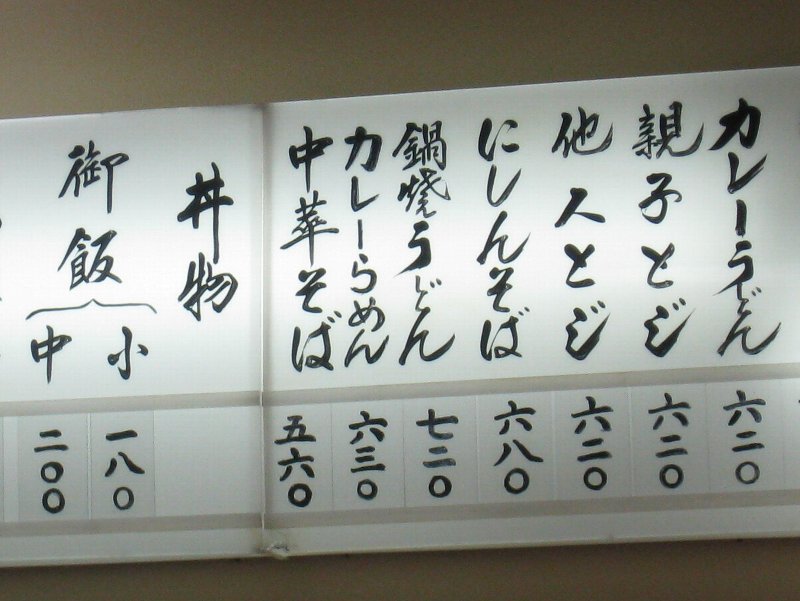 カレーうどん
六二〇
親子とじ
六二〇
他人とじ
六二〇
にしんそば
六八〇
鍋焼うどん
七二〇
カレーらめん
六三〇
中華そば
五六〇
丼物
御飯
小
一八〇
中
二〇〇